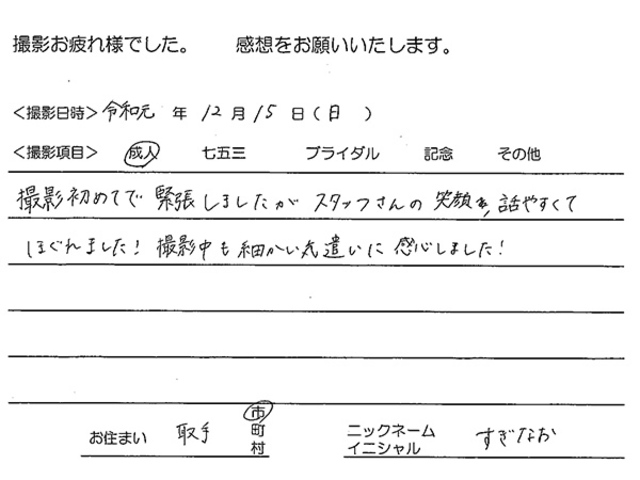 撮影お疲れ様でした。 感想をお願いいたします。
<撮影日時> 令和元 年 12月 15 日 ( 日 )
<撮影項目> 成人 七五三 ブライダル 記念 その他
撮影初めてで 緊張しましたが スタッフさんの 笑顔を、話やすくて
ほぐれました! 撮影中も細かい気遣いに 感心しました!
お住まい 取手 市
町
村
ニックネーム すぎなお
イニシャル